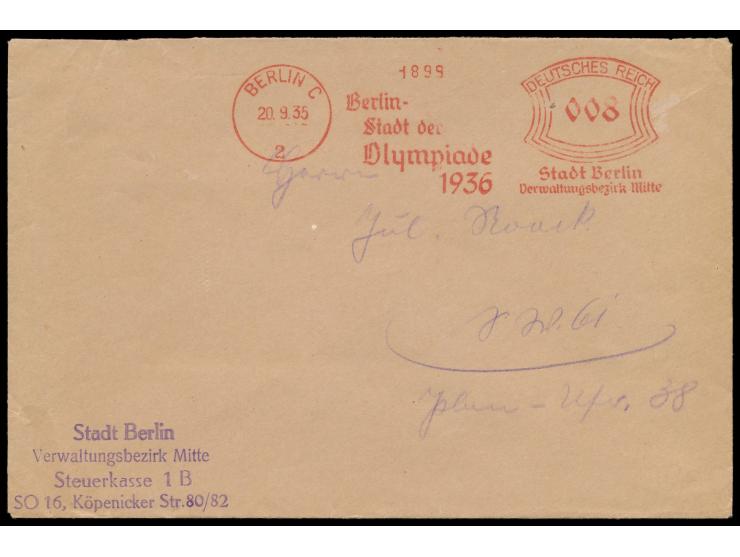 BERLIN C
20. 9. 35
2
1899
Berlin-
Stadt der
Olympiade
1936
DEUTSCHES REICH
008
Stadt Berlin
Verwaltungsbezirk Mitte
Herrn
Jul. Noack
S.W. 61
Plan-Ufer. 38
Stadt Berlin
Verwaltungsbezirk Mitte
Steuerkasse 1 B
SO 16, Köpenicker Str. 80/82